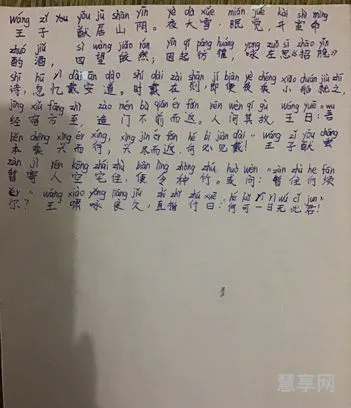 wáng zǐ yóu yōu jū shān yīn yè dà xuě mián jué kāi shì mìng
王子猷居山阴。夜大雪，眠觉，开室命
zhuó jiǔ sì wàng jiǎo rán yīn qǐ páng huáng yǒng zuǒ sī zhāo yǐn
酌酒，四望皎然；因起彷徨，咏左思《招隐》
shī hū yì dài ān dào shí dài zài shàn jí biàn yè chéng xiǎo chuán jiù zhī
诗，忽忆戴安道。时戴在剡，即便夜乘小船就之，
jīng xiǔ fāng zhì zào mén bù qián ér fǎn rén wèn qí gù wáng yuē wú
经宿方至，造门不前而返。人问其故，王曰：吾
běn chéng xìng ér xíng xìng jìn ér fǎn hé bì jiàn dài wáng zǐ yóu cháng
本乘兴而行，兴尽而返，何必见戴！王子猷尝
zàn jì rén kōng zhái zhù biàn lìng zhòng zhú huò wèn zàn zhù hé fán
暂寄人空宅住，便令种竹。或问：暂住何烦
ěr wáng xiào yǒng liáng jiǔ zhí zhǐ zhú yuē hé kě yí rì wú cǐ jūn
尔？王啸咏良久，直指竹曰：何可一日无此君！
慧享网